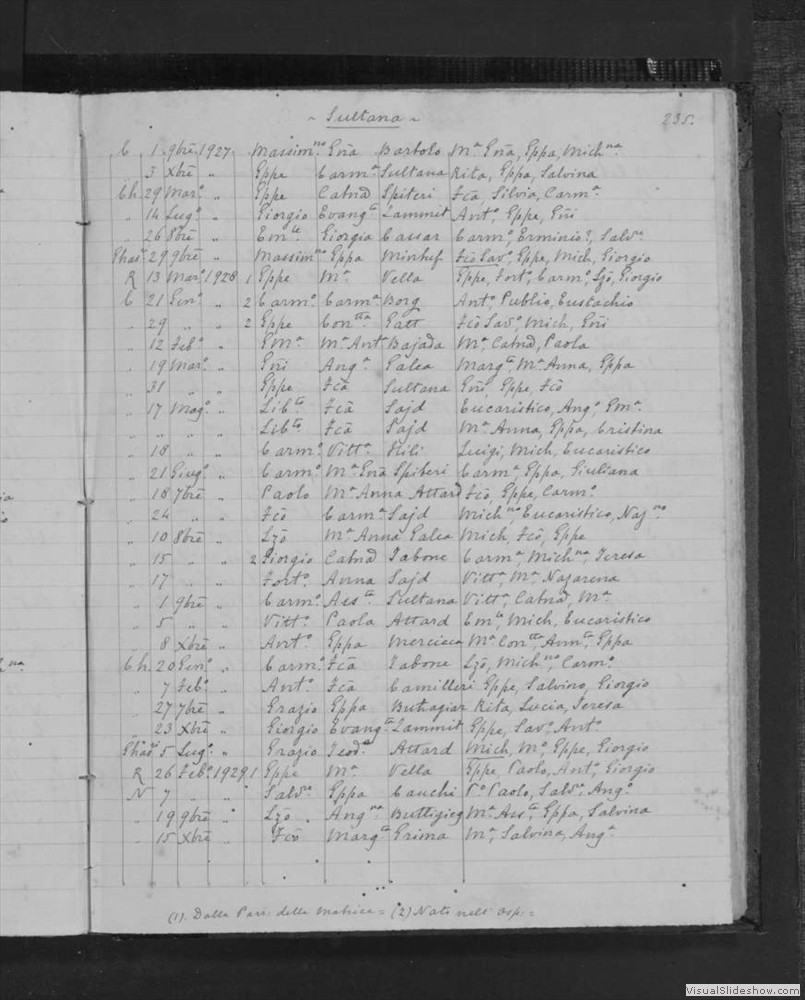 ~ Sultana ~ 235.
C 1 9bre 1927 Massimno Gña Bartolo Ma Gña, Gppa, Michna
" 3 Xbre " Gppe Carma Sultana Rita, Gppa, Salvina
Ch 29 Maro " Gppe Catnd Spiteri Fcã, Silvia, Carma
" 14 Lugo " Giorgio Evangta Zammit Anto, Gppe, Gñi
" 26 8bre " Emle Giorgia Cassar Carmo, Erminio?, Salvre
Ghasi 29 9bre " Massimno Gppa Gppe, Mich, Giorgio
R 13 Maro 1928 1 Gppe Ma Vella Gppe, Forto, Carmo, Lzõ, Giorgio
C 21 Geno " 2 Carmo Carma Borg Anto, Publio, Eustachio
" 29 " " 2 Gppe Contta Gatt Fcõ Savo, Mich, Gñi
" 12 Febo " Gma Ma Ant Bajada Ma, Catnd, Paola
" 19 Maro " Gñi Anga Galea Margta, Ma Anna, Gppa
" 31 " " Gppe Fcã Sultana Gño, Gppe, Fcõ
" 17 Mago " Libto Fcã Sajd Eucaristico, Ango, Gma
" " " " Libto Fcã Sajd Ma Anna, Gppa, Cristina
" 18 " " Carmo Vitta Hili Luigi, Mich, Eucaristico
" 21 Giugo " Carmo Ma Gña Spiteri Carma, Gppa, Giuliana
" 18 7bre " Paolo Ma Anna Attard Fcõ, Gppe, Carmo
" 24 " " Fcõ Carma Sajd Michno, Eucaristico, Nazno
" 10 8bre " Lzõ Ma Anna Galea Mich, Fcõ, Gppe
" 15 " " 2 Giorgio Catnd Tabone Carma, Michna, Teresa
" 17 " " Forto Anna Sajd Vitta, Ma, Nazarena
" 1 9bre " Carmo Assta Sultana Vitta, Catnd, Ma
" 5 " " Vitto Paola Attard Emle, Mich, Eucaristico
" 8 Xbre " Anto Gppa Mercieca Ma Contta, Annta, Gppa
Ch 20 Geno " Carmo Fcã Tabone Lzõ, Michno, Carmo
" 7 Febo " Anto Fcã Camilleri Gppe, Salvino, Giorgio
" 27 7bre " Grazio Gppa Buttagiar Rita, Lucia, Teresa
" 23 Xbre " Giorgio Evangta Zammit Gppe, Savo, Anto
Ghasi 5 Lugo " Grazio Teodta Attard Mich, Mo, Gppe, Giorgio
R 26 Febo 1929 1 Gppe Ma Vella Gppe, Paolo, Anto, Giorgio
N 7 " " Salvre Gppa Cauchi Po Paolo, Salvre, Ango
" 19 9bre " Lzõ Angna Buttigieg Ma Assta, Gppa, Salvina
" 15 Xbre " Fcõ Margta Grima Ma, Salvina, Anga
(1). Dalla Parr. della Matrice = (2) Nato nell' Osp. =
VisualSlideshow.com